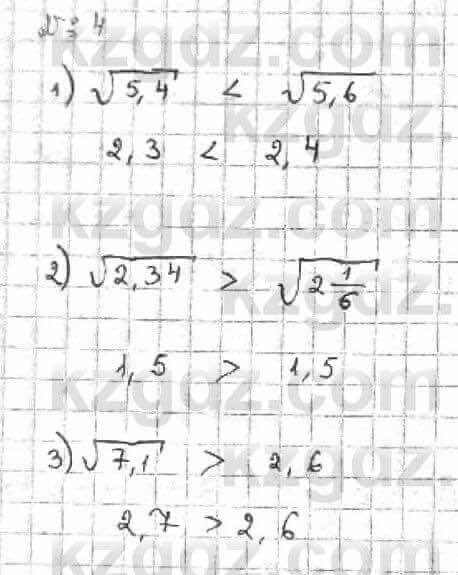 № 4
1) √5,4 < √5,6
2,3 < 2,4
2) √2,34 > √2 1/6
1,5 > 1,5
3) √7,1 > 2,6
2,7 > 2,6
kzgdz.com
kzgdz.com
kzgdz.com
kzgdz.com
kzgdz.com
kzgdz.com
kzgdz.com